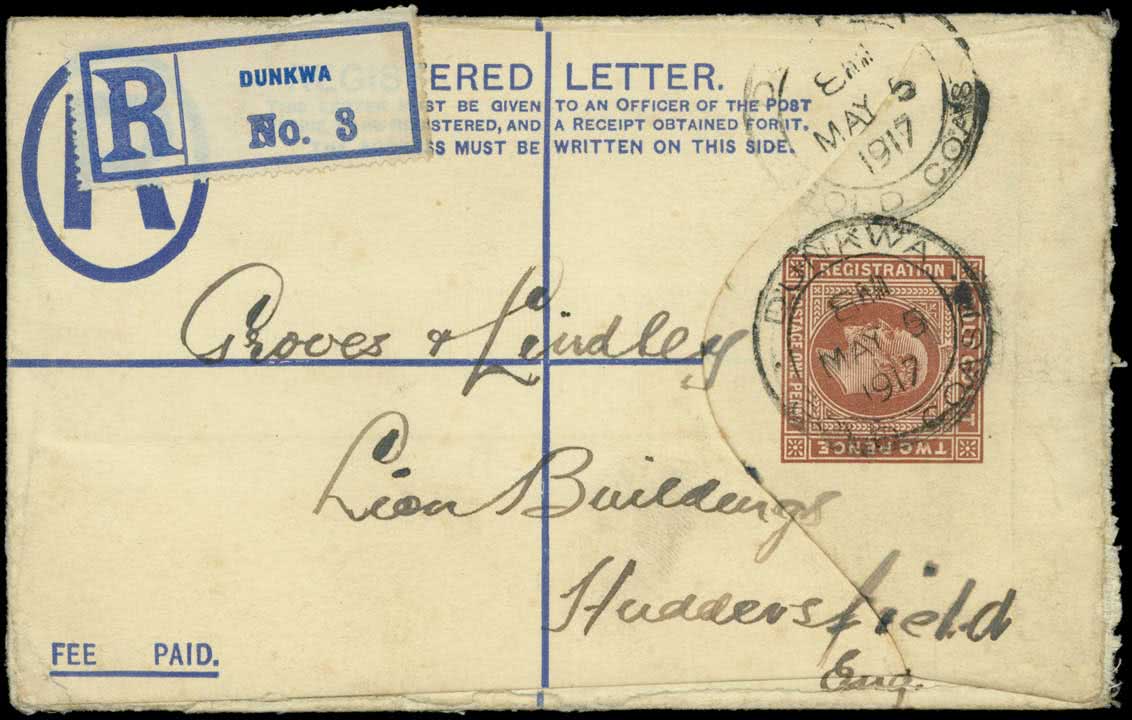 R
DUNKWA
No. 3
ERED LETTER.
ST BE GIVEN TO AN OFFICER OF THE POST
STERED, AND A RECEIPT OBTAINED FOR IT.
SS MUST BE WRITTEN ON THIS SIDE.
MAY 5
1917
GOLD COAS
DUNKWA
MAY 5
1917
COAST
REGISTRATION
POSTAGE ONE PENNY
TWO PENCE
Groves & Lindley
Lion Buildings
Huddersfield
Eng.
FEE PAID.